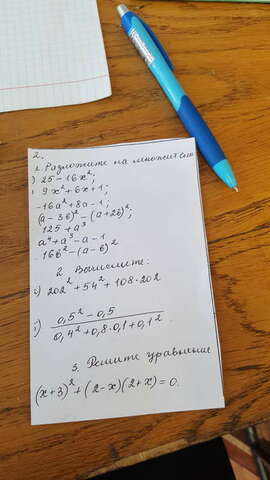 2.
1. Разложите на множители
) 25 - 16x²;
) 9x² + 6x + 1;
-16a² + 8a - 1;
(a - 3b)² - (a + 2b)²;
125 + a³
a⁴ + a³ - a - 1
16b² - (a - b)²
2. Вычислите:
202² + 54² + 108 · 202
0,5² - 0,5
0,4² + 0,8 · 0,1 + 0,1²
3. Решите уравнение
(x + 3)² + (2 - x)(2 + x) = 0.